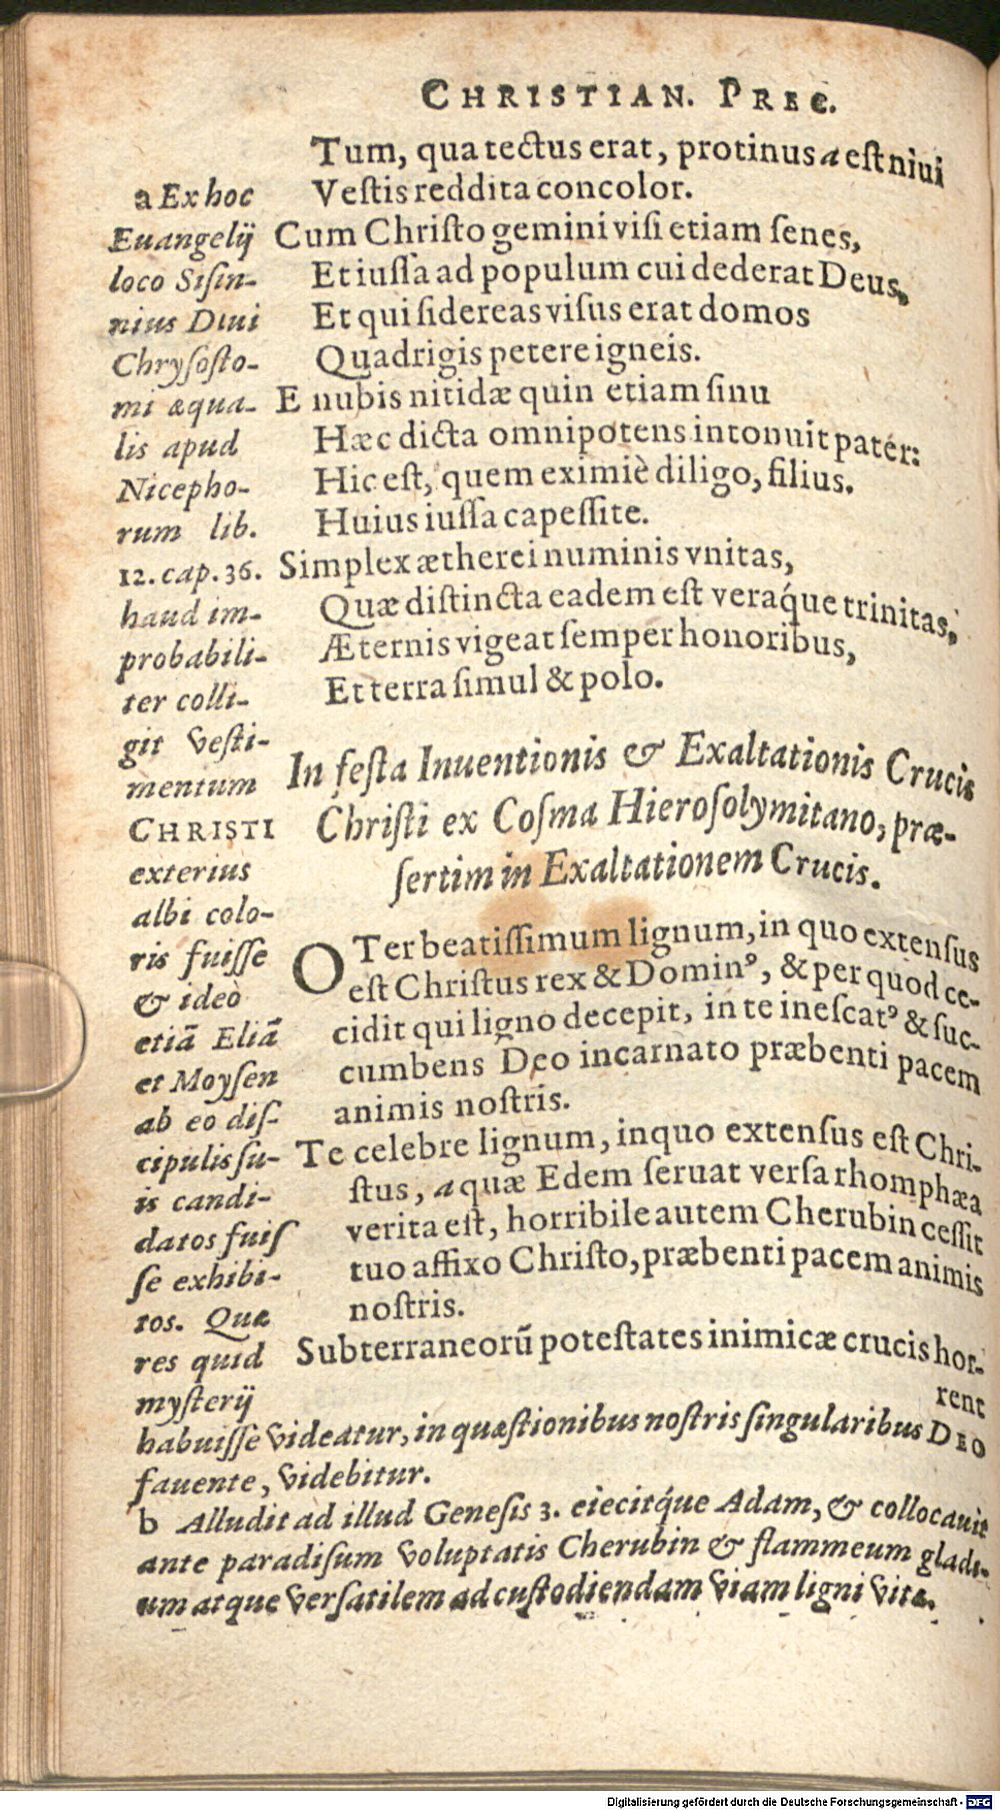 CHRISTIAN. PREC.
Tum, qua tectus erat, protinus a est niui
Vestis reddita concolor.
Cum Christo gemini visi etiam senes,
Et iussa ad populum cui dederat Deus,
Et qui sidereas visus erat domos
Quadrigis petere igneis.
E nubis nitidæ quin etiam sinu
Hæc dicta omnipotens intonuit pater:
Hic est, quem eximiè diligo, filius.
Huius iussa capessite.
Simplex ætherei numinis vnitas,
Quæ distincta eadem est veraq́ue trinitas,
Æternis vigeat semper honoribus,
Et terra simul & polo.
a Ex hoc
Euangelij
loco Sisin-
nius Diui
Chrysosto-
mi æqua-
lis apud
Nicepho-
rum lib.
12. cap. 36.
haud im-
probabili-
ter colli-
git vesti-
mentum
CHRISTI
exterius
albi colo-
ris fuisse
& ideò
etiā Eliā
et Moysen
ab eo dis-
cipulis su-
is candi-
datos fuis
se exhibi-
tos. Quæ
res quid
mysterij
habuisse videatur, in quæstionibus nostris singularibus DEO
fauente, videbitur.
In festa Inuentionis & Exaltationis Crucis
Christi ex Cosma Hierosolymitano, præ-
sertim in Exaltationem Crucis.
O Ter beatissimum lignum, in quo extensus
est Christus rex & Dominꝰ, & per quod ce-
cidit qui ligno decepit, in te inescatꝰ & suc-
cumbens Deo incarnato præbenti pacem
animis nostris.
Te celebre lignum, in quo extensus est Chri-
stus, a quæ Edem seruat versa rhomphæa
verita est, horribile autem Cherubin cessit
tuo affixo Christo, præbenti pacem animis
nostris.
Subterraneorū potestates inimicæ crucis hor-
rent
b Alludit ad illud Genesis 3. eiecitq́ue Adam, & collocauit
ante paradisum voluptatis Cherubin & flammeum gladi-
um atque versatilem ad custodiendam viam ligni vitæ.
Digitalisierung gefördert durch die Deutsche Forschungsgemeinschaft - DFG